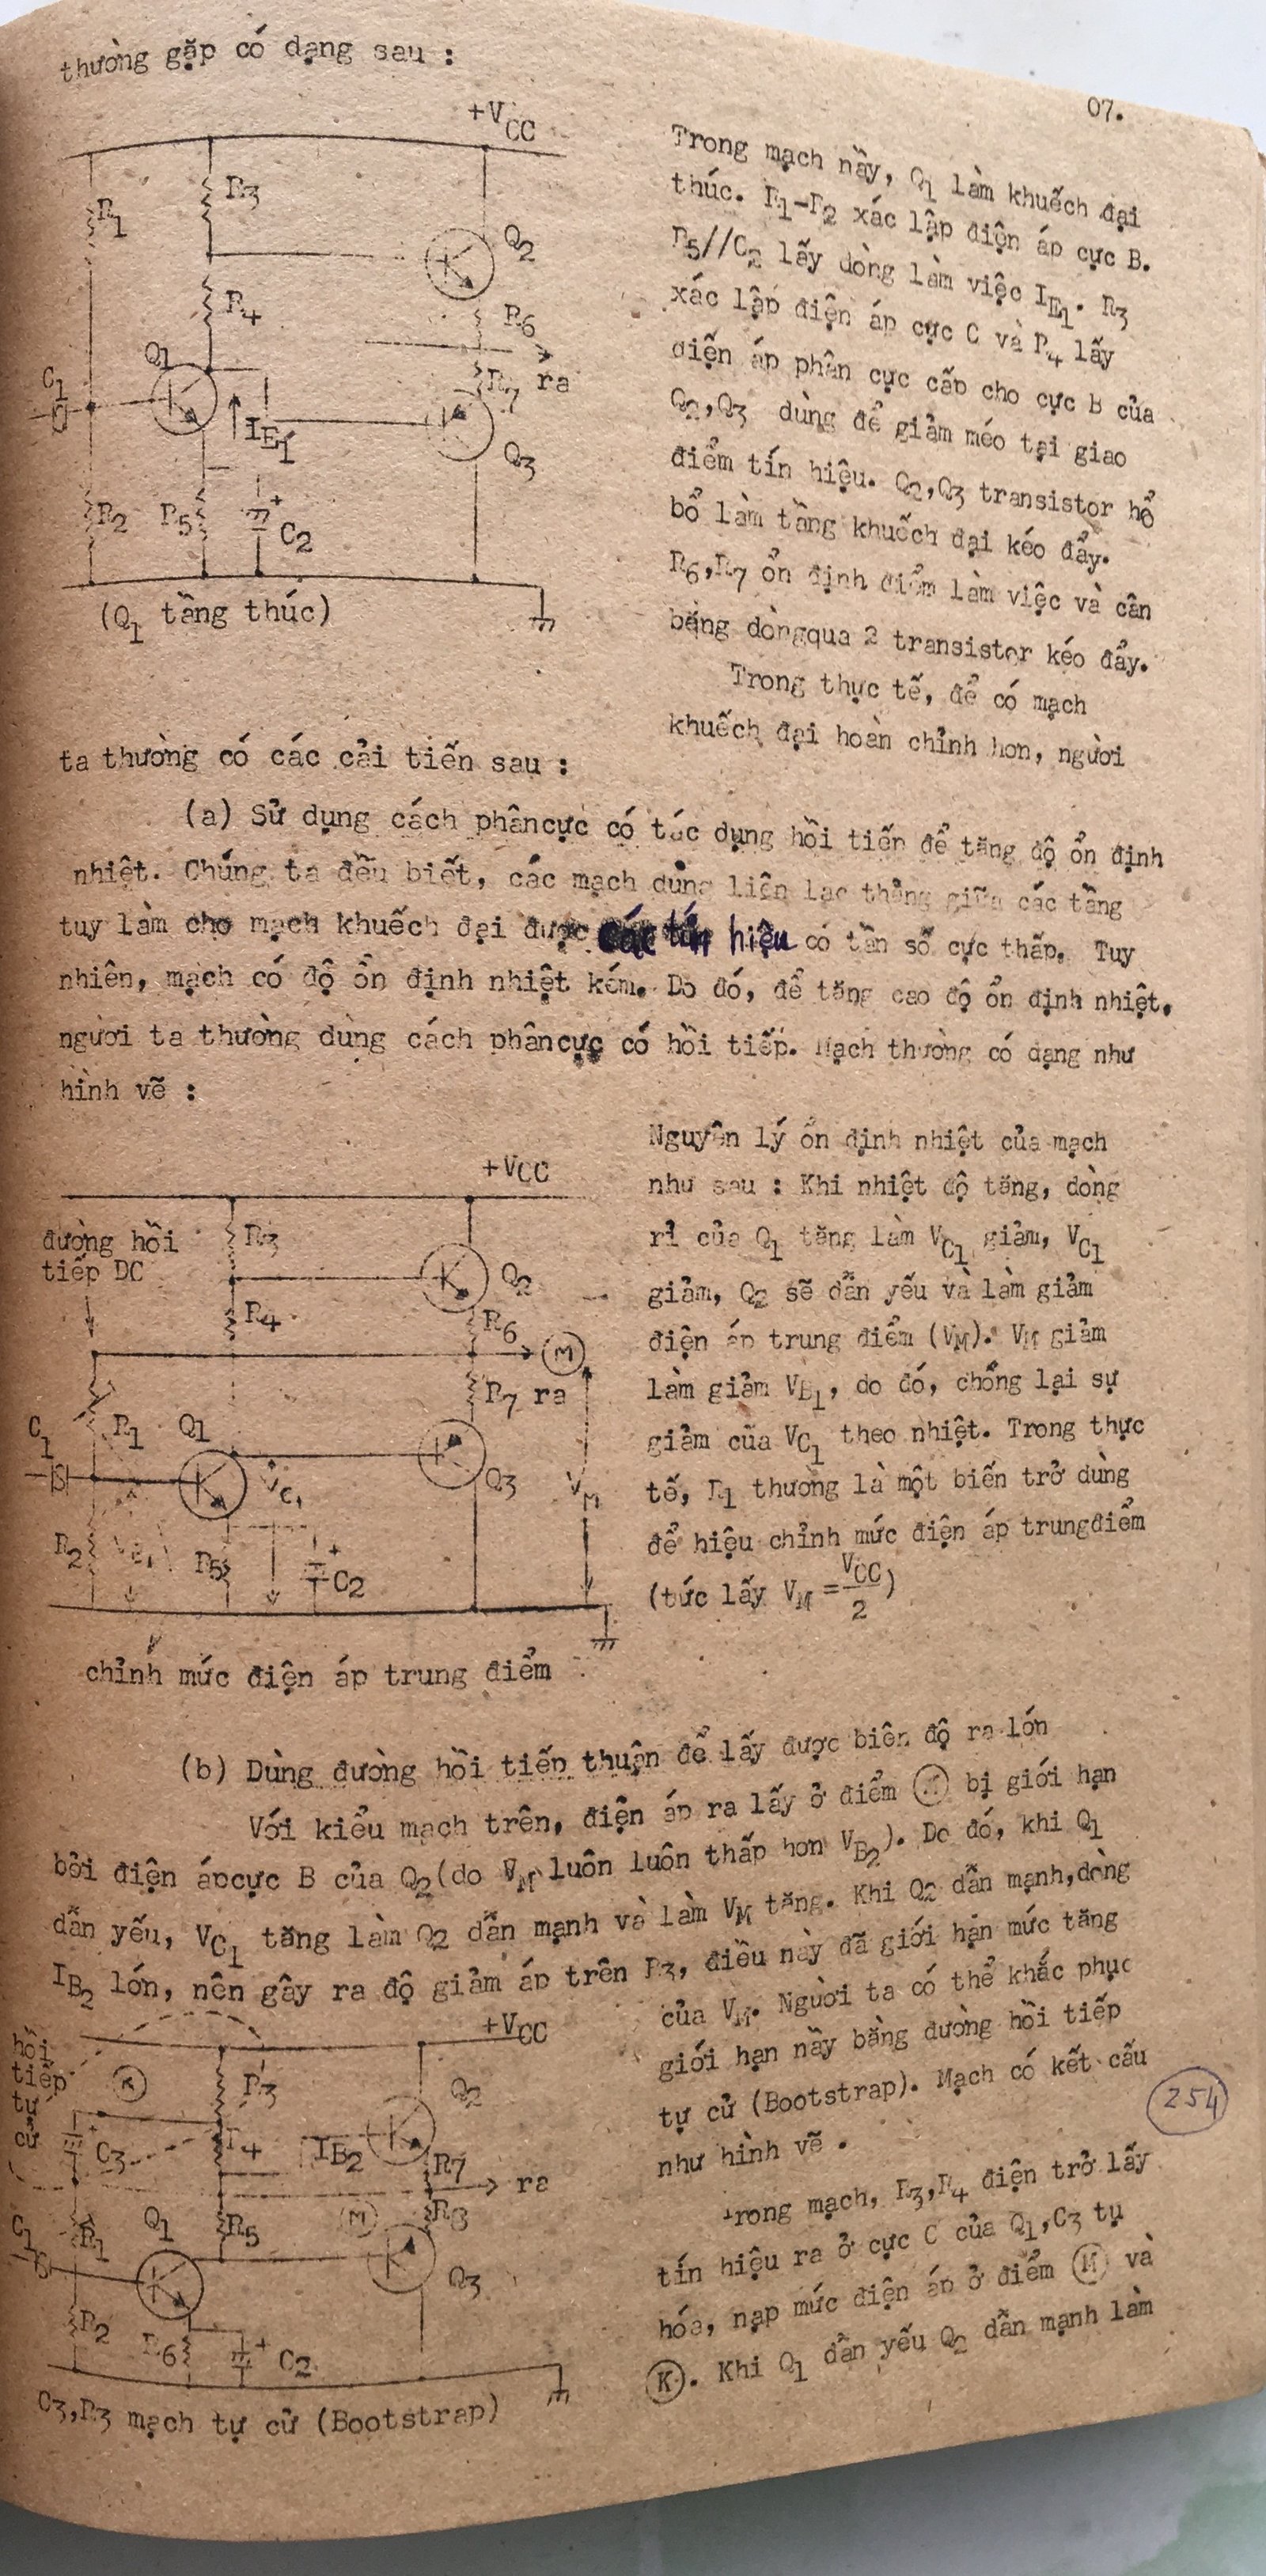 thường gặp có dạng sau :
07.
+VCC
R1
R3
Q2
R4
R6
Q1
C1
ra
R7
IE1
Q3
R2
R5
C2
(Q1 tầng thúc)
Trong mạch nầy, Q1 làm khuếch đại
thúc. R1-R2 xác lập điện áp cực B.
R5//C2 lấy dòng làm việc IE1. R3
xác lập điện áp cực C và R4 lấy
điện áp phân cực cấp cho cực B của
Q2,Q3 dùng để giảm méo tại giao
điểm tín hiệu. Q2,Q3 transistor hổ
bổ làm tầng khuếch đại kéo đẩy.
R6,R7 ổn định điểm làm việc và cân
bằng dòngqua 2 transistor kéo đẩy.
Trong thực tế, để có mạch
khuếch đại hoàn chỉnh hơn, người
ta thường có các cải tiến sau :
(a) Sử dụng cách phâncực có tác dụng hồi tiếp để tăng độ ổn định
nhiệt. Chúng ta đều biết, các mạch dùng liên lạc thẳng giữa các tầng
tuy làm cho mạch khuếch đại được các tín hiệu có tần số cực thấp. Tuy
nhiên, mạch có độ ổn định nhiệt kém. Do đó, để tăng cao độ ổn định nhiệt,
người ta thường dùng cách phâncực có hồi tiếp. Mạch thường có dạng như
hình vẽ :
+VCC
đường hồi
tiếp DC
R3
Q2
R4
R6
M
R7 ra
C1
R1
Q1
VC1
Q3
VM
R2
VB1
R5
C2
chỉnh mức điện áp trung điểm
Nguyên lý ổn định nhiệt của mạch
như sau : Khi nhiệt độ tăng, dòng
rỉ của Q1 tăng làm VC1 giảm, VC1
giảm, Q2 sẽ dẫn yếu và làm giảm
điện áp trung điểm (VM). VM giảm
làm giảm VB1, do đó, chống lại sự
giảm của VC1 theo nhiệt. Trong thực
tế, R1 thường là một biến trở dùng
để hiệu chỉnh mức điện áp trungđiểm
(tức lấy VM = VCC/2)
(b) Dùng đường hồi tiếp thuận để lấy được biên độ ra lớn
Với kiểu mạch trên, điện áp ra lấy ở điểm M bị giới hạn
bởi điện ápcực B của Q2(do VM luôn luôn thấp hơn VB2). Do đó, khi Q1
dẫn yếu, VC1 tăng làm Q2 dẫn mạnh và làm VM tăng. Khi Q2 dẫn mạnh,dòng
IB2 lớn, nên gây ra độ giảm áp trên R3, điều này đã giới hạn mức tăng
của VM. Người ta có thể khắc phục
giới hạn nầy bằng đường hồi tiếp
tự cử (Bootstrap). Mạch có kết cấu
như hình vẽ .
Trong mạch, R3,R4 điện trở lấy
tín hiệu ra ở cực C của Q1,C3 tụ
hóa, nạp mức điện áp ở điểm M và
K. Khi Q1 dẫn yếu Q2 dẫn mạnh làm
254
+VCC
hồi
tiếp
tự
cử
K
R3
Q2
C3
R4
IB2
R7
ra
C1
R1
Q1
R5
M
R8
Q3
R2
R6
C2
C3,R3 mạch tự cử (Bootstrap)